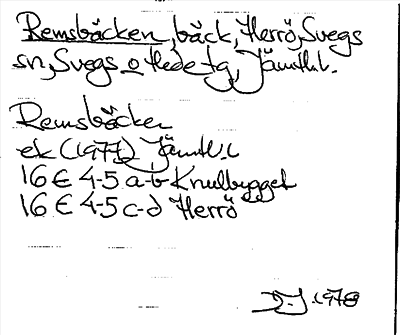 Remsbäcken, bäck, Herrö, Svegs
sn, Svegs o Hede tg, Jämtl.l.
Remsbäcken
ek (1977) Jämtl.l
16 E 4-5 a-b Knulbygget
16 E 4-5 c-d Herrö
1978